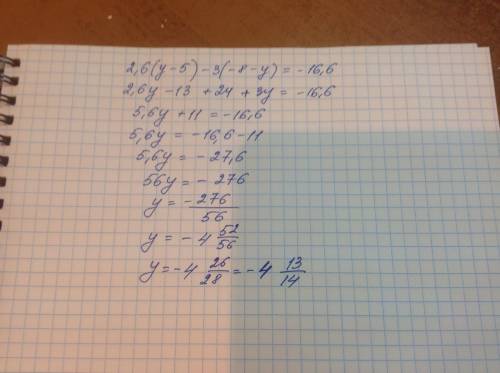 2,6(y-5)-3(-8-y)=-16,6
2,6y-13+24+3y=-16,6
5,6y+11=-16,6
5,6y=-16,6-11
5,6y=-27,6
56y=-276
y=-276/56
y=-4 52/56
y=-4 26/28=-4 13/14